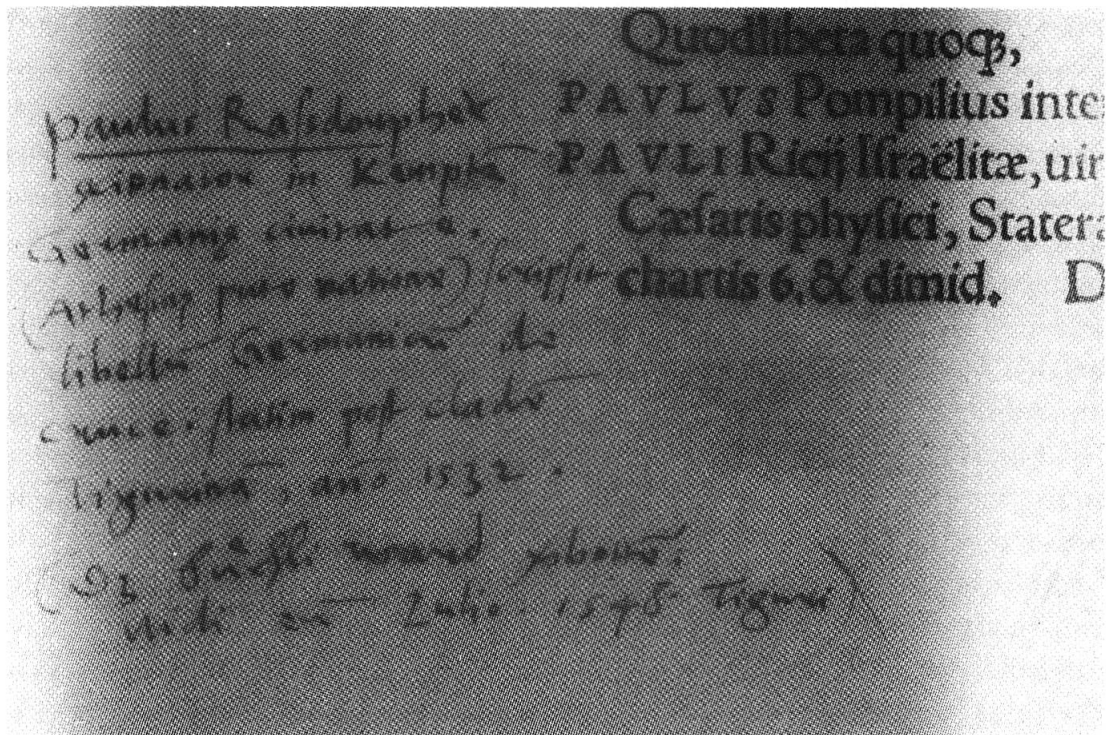 Quodlibeta quoqꝫ,
PAVLVS Pompilius inte
PAVLI Ricij Israëlitæ, uir
Cæsaris physici, Statera
chartis 6. & dimid. D
Paulus Rasdorphet
in Kempta
Germaniæ
(Artesius puto natione) scripsit
libellū Germanicū de
cruce: statim post cladē
tigurinā, anō 1532.
(Dz
vidi Iulio 1548 Tiguri)